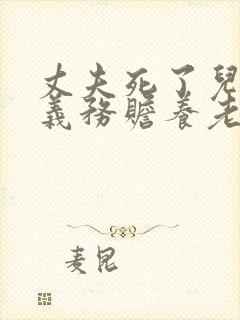 丈夫死了兒
義務贍養老
麦昆